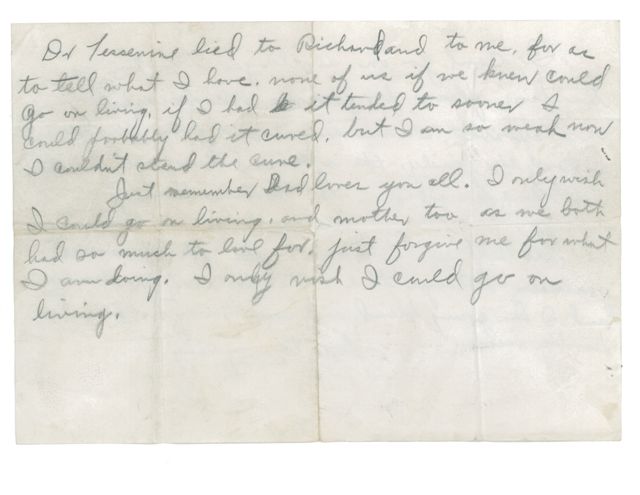 Dr Tessenine lied to Richard and to me, for as
to tell what I have. none of us if we knew could
go on living, if I had it tended to sooner I
could probably had it cured, but I am so weak now
I couldn't stand the cure.
Just remember Dad loves you all. I only wish
I could go on living, and mother too as we both
had so much to live for, just forgive me for what
I am doing. I only wish I could go on
living.